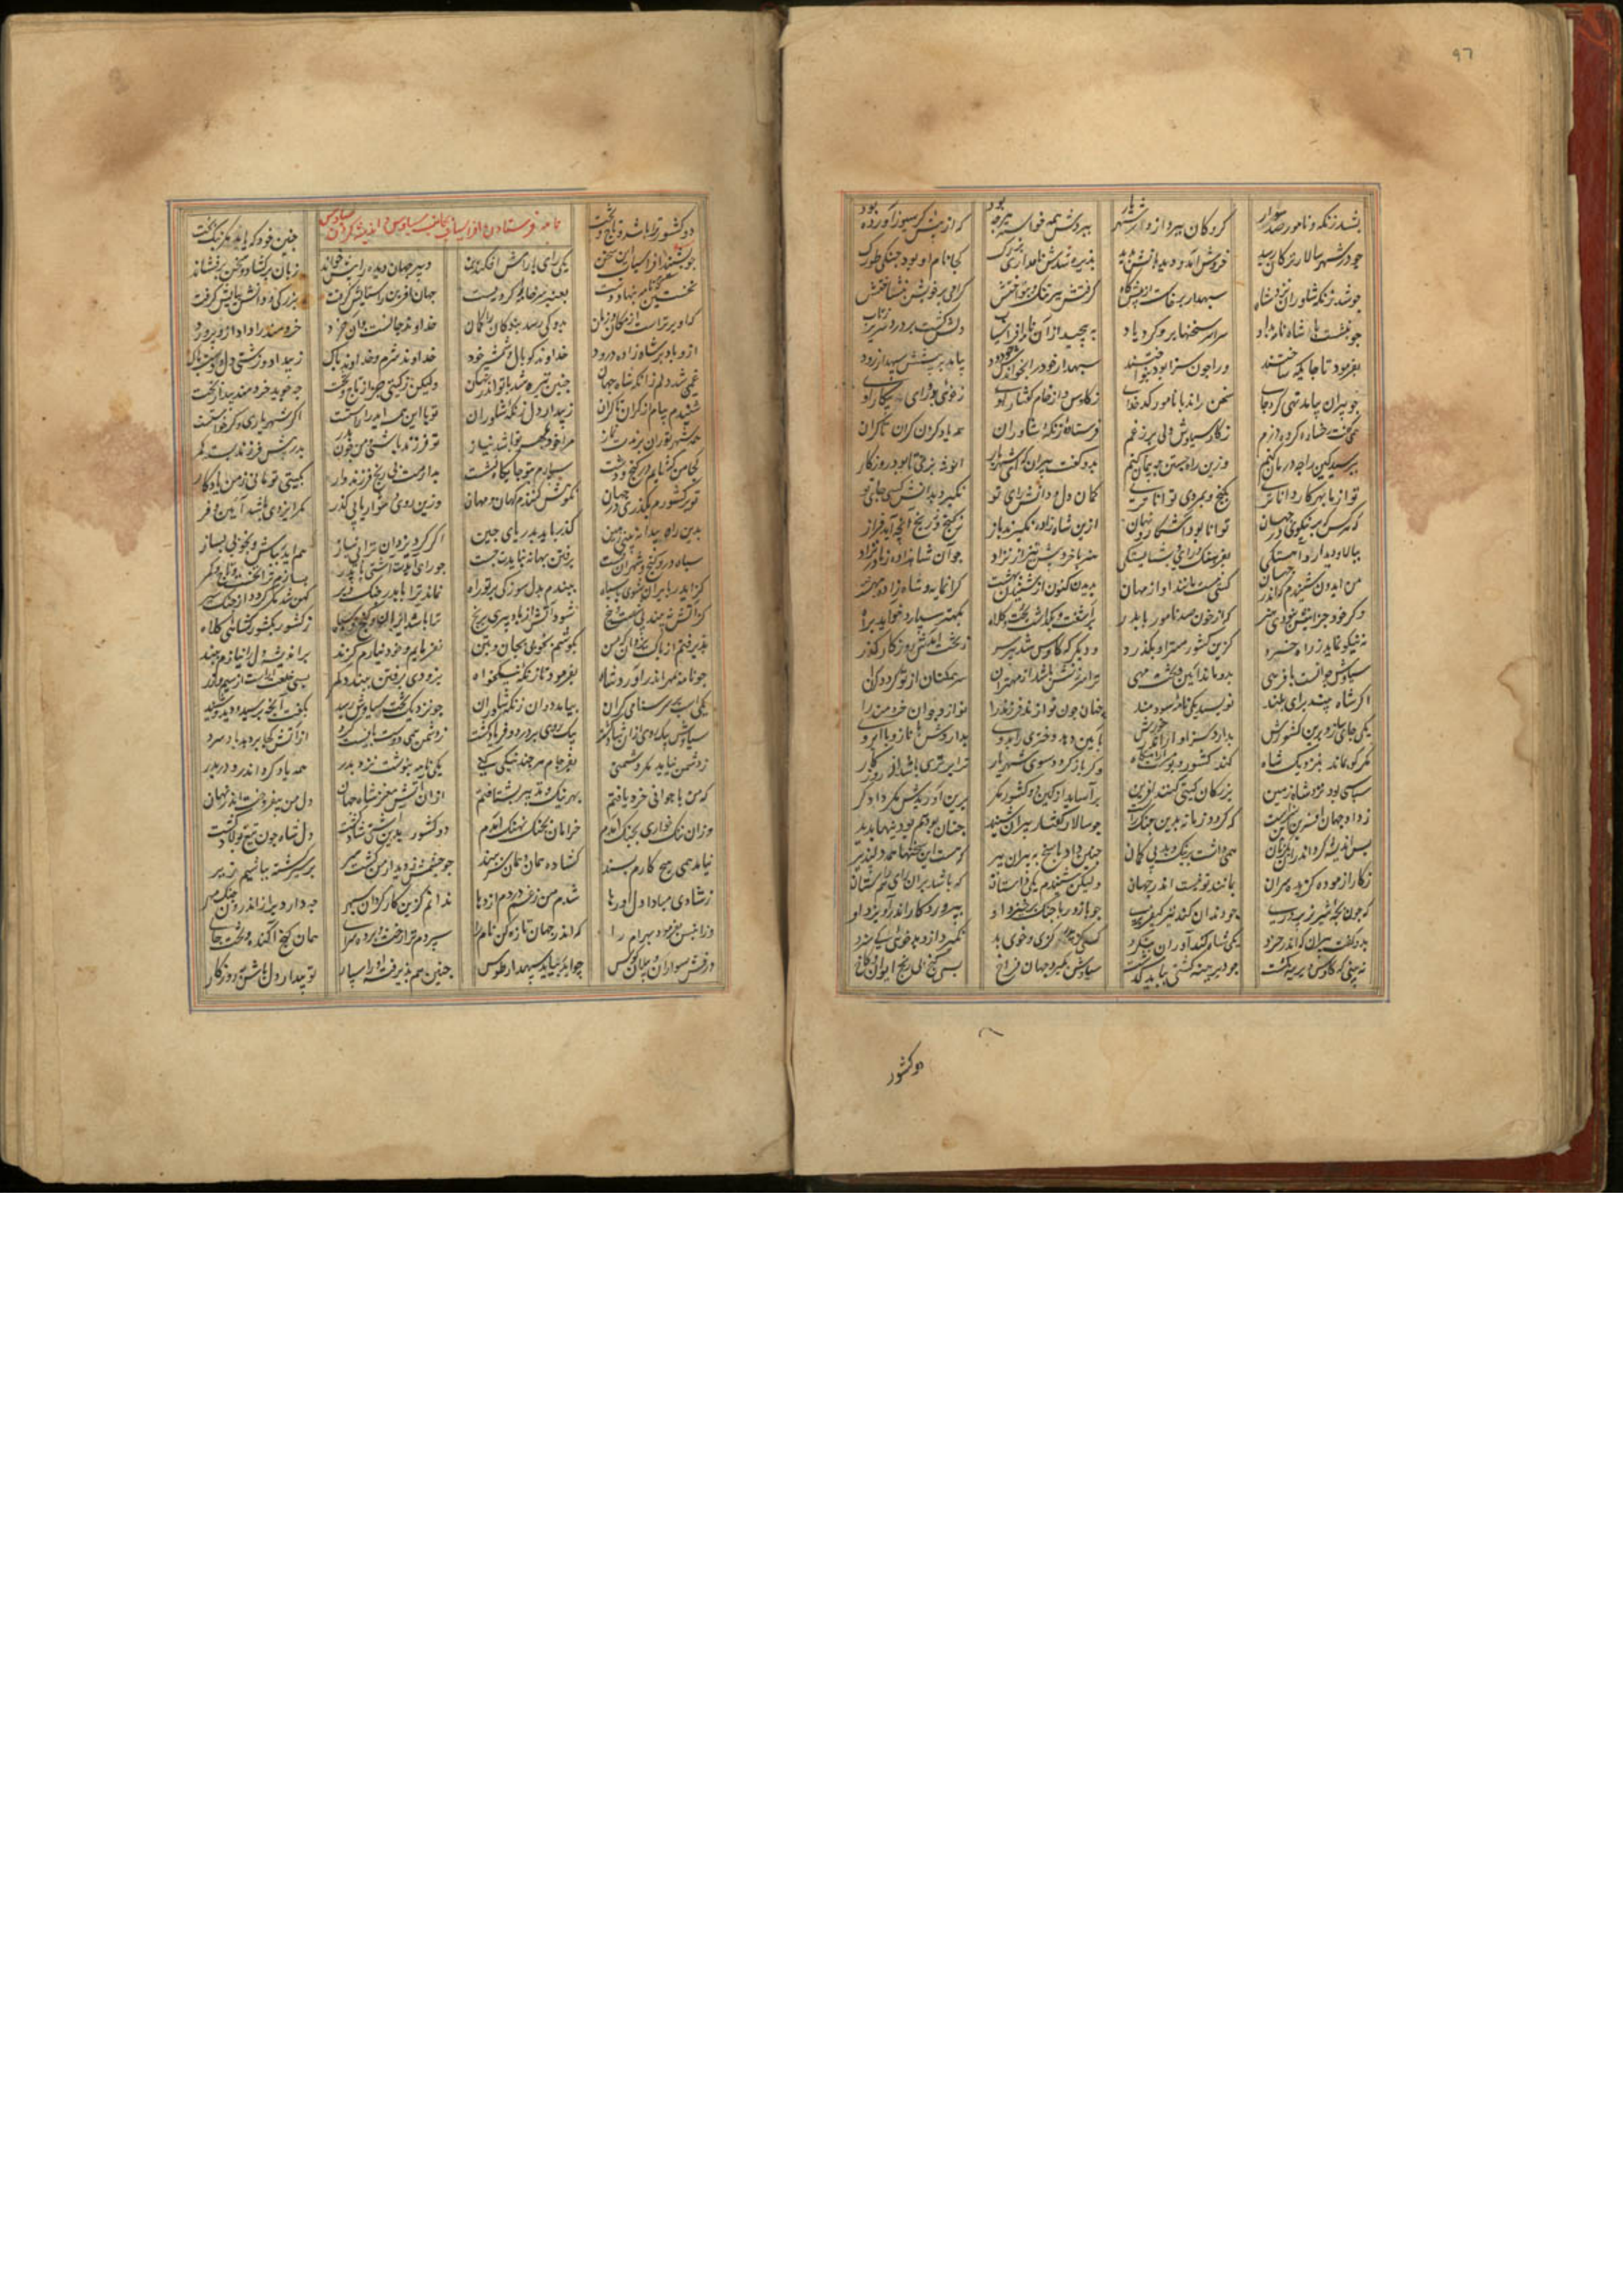 ۹۶
بشد زنکه و نامور صد سوار کروکان ببرد از در شهریار ببردش همه خواسته هرچه بود که از پیش کرسیوز آورده بود
چو در شهر سالار ترکان رسید خروش آمد و دیده بانش بدید پذیره شدش نامداری بزرک کجا نام او بود جنکی طورک
چو شد زنکه شاوران نزد شاه سپهدار برخاست از پیشکاه کرفتش ببر تنک و بنواختش کرامی بر خویش بنشاختش
چو بنشست با شاه نامه بداد سراسر سخنها برو کرد یاد بپیچید از آن نامه افراسیاب دلش کشت پر درد و سر پر ز تاب
بفرمود تا جایکه ساختند ورا چون سزا بود بنواختند
چو پیران بیامد تهی کرد جای سخن راند با نامور کدخدای ز کاوس و از خام کفتار اوی ز خوی بد و رای و پیکار اوی
همی کفت و رخساره کرده دژم ز کار سیاوش دلی پر ز غم فرستاده زنکه شاوران همه یاد کرد از کران تا کران
بپرسید کاین را چه درمان کنیم وزین راه جستن چه پیمان کنیم بدو کفت پیران که ای شهریار انوشه بزی تا بود روزکار
تو از ما بهر کار داناتری بکنج و بمردی تواناتری کمان و دل و دانش و رای تو نکیرد بدانش کسی جای تو
که هر کس که بر نیکوی در جهان توانا بود آشکار و نهان ازین شاه زاده نکیرند باز ز کنج و ز رنج آنچه آید فراز
ببالا و دیدار و آهستکی بفرهنک و رای و بشایستکی جو آن شاهزاده ز مادر نزاد
من ایدون شنیدم که اندر جهان کسی نیست مانند او از مهان بدیدن کنون از شنیدن بهست کرانمایه و شاه زاده و مهست
وکر خود جز اینش نبودی هنر که از خون صد نامور با پدر برآشفت و بکذاشت تخت و کلاه
نه نیکو نماید ز راه خرد کزین کشور مهتر او بکذرد و دیکر که کاوس شد پیر سر ز تخت آیدش روزکار کذر
سیاوش جوانست با فرهی بدو ماند آیین و تخت مهی ترا سرزنش باشد از مهتران سر همکنان از تو کردد کران
اکر شاه بیند برای بلند نویسد یکی نامه سودمند چنان چون نوازند فرزند را نوازد جوان خردمند را
یکی جای سازد برین کشورش بدارد سزاوار اندر خورش بآیین دهد دختری را بدوی بداردش با ناز و با آبروی
مکر کو بماند بنزدیک شاه کند کشور و بومت آرامکاه وکر باز کردد سوی شهریار ترا برتری باشد از روزکار
سپاسی بود نزد شاه زمین بزرکان کیتی کنند آفرین برآساید از کین دو کشور مکر برین آوریدش مکر دادکر
ز داد جهان آفرین این سزاست که کردد زمانه بدین جنک راست چو سالار کفتار پیران شنید چنان بودنیها بدید
پس اندیشه کرد اندران یکزمان همی داشت بر نیک و بد بر کمان چنین داد پاسخ به پیران پیر که هست این سخنها همه دلپذیر
ز کار آزموده کزیده سران بمانند تو نیست اندر جهان ولیکن شنیدم یکی داستان که باشد بدین رای همداستان
که چون بچه شیر نر پروری چو دندان کند تیز کیفر بری چو با زور و با چنک برخیزد او بپروردکار اندر آویزد او
بدو کفت پیران که اندر خرد یکی شاه کند آوران بنکرد کسی کز پدر کژی و خوی بد نکیرد ازو بدخویی کی سزد
نه بینی که کاوس دیرینه کشت چو دیرینه کشتی بباید کذشت سیاوش بکیرد جهان فراخ بسی کنج بی رنج ایوان و کاخ
دوکشور
دو کشور ترا باشد و تاج و تخت نامه فرستادن افراسیاب بجانب سیاوش و اندیشه کردن سیاوش چنین خود که یابد مکر نیک بخت
چو بشنید افراسیاب این سخن یکی رای با رامش افکند بن دبیر جهان دیده را پیش خواند زبان برکشاد و سخن برفشاند
نخستین که بر نامه بنهاد دست بعنبر سر خامه را کرد مست جهان آفرین را ستایش کرفت بزرکی و دانش نمایش کرفت
کو برترست از مکان و زمان بدو کی رسد بندکان را کمان خداوند جانست و آن خرد خردمند را داد او پرورد
ازو باد بر شاه زاده درود خداوند کوپال و شمشیر و خود خداوند شرم و خداوند باک ز بیداد و زشتی دل و دست پاک
غمی شد دلم زانکه شاه جهان چنین تیره شد با تو اندر نهان ولیکن ز کیتی جز از تاج و تخت چه جوید خردمند بیدار بخت
شنیدم پیام از کران تا کران ز بیدار دل زنکه شاوران ترا این همه ایدر آراستست اکر شهریاری وکر خواستست
همه شهر توران برندت نماز مرا خود بمهر تو باشد نیاز تو فرزند باشی و من چون پدر پدر پیش فرزند بسته کمر
کجا من کشایم در کنج و دست سپارم بتو جایکاه نشست بدارمت بی رنج فرزندوار بکیتی تو مانی ز من یادکار
تو بر کشورم بکذری در جهان نکوهش کنندم کهان و مهان وزین روی دشوار یابی کذر مکر ایزدی باشد آیین و فر
بدین راه پیدا نه بینی زمین کذر باید بدریای چین اکر کرد یزدان ترا بی نیاز هم ایدر بباش و بخوبی بساز
سپاه و در و کنج و شهر آن تست برفتن بهانه نبایدت جست چو رای آیدت آشتی با پدر بسازم ترا تخت و تاج و کمر
کز ایدر بایران شوی با سپاه ببندم بدل سوزکی بر تو راه نماند ترا با پدر جنک دیر کهن شد مکر کردد از جنک سیر
کر آتش ببیند پی شصت و پنج شود آتش از باد پیری برنج ترا باشد ایران و کنج و سپاه ز کشور بکشور کلاه
پذیرفتم از پاک یزدان که من بکوشم بخوبی بجان و بتن نفرمایم و خود نیارم کزند براندیشه دل را نیازم ببند
چو نامه بمهر اندر آورد شاه بفرمود تا زنکه نیکخواه بزودی برفتن ببندد کمر بسی خلعت آراست از سیم و زر
یکی اسب بر سر ستام کران بیامد دمان زنکه شاوران چو نزدیک تخت سیاوش رسید بکفت آنچه پرسید و دید و شنید
سیاوش بیک روی ازان شاد کشت بیک روی پر درد و فریاد کشت ز دشمن همی دوست بایست کرد از آتش کجا بردمد باد سرد
ز دشمن نیاید مکر دشمنی بفرجام هر چند نیکی کنی یکی نامه بنوشت نزد پدر همه یاد کرد اندرو در بدر
که من با جوانی خرد یافتم بهر نیک و بد نیز بشتافتم ازان آتش مغز شاه جهان دل من برافروخت اندر نهان
وزان ننک خواری بجنک آمدم خرامان بجنک نهنک آمدم دو کشور بدین آشتی شاد کشت دل شاه چون تیغ پولاد کشت
نیامد همی هیچ کارم پسند کشاده همان و همان بند چو چشمش ز دیدار من کشت سیر بر سیر کشته نباشیم دیر
ز شادی مبادا دل او رها شدم من ز غم در دم اژدها ندانم کزین کار کردان سپهر چه دارد براز اندرون جنک و مهر
وزان پس بفرمود بهرام را که اندر جهان تازه کن نام را سپردم ترا رخت و پرده سرای همان کنج آکنده و تخت جای
درفش و سواران و پیلان و کوس چو ایدر بیاید سپهدار طوس چنین هم پذیرفته او را سپار تو بیدار دل باش و به روزکار